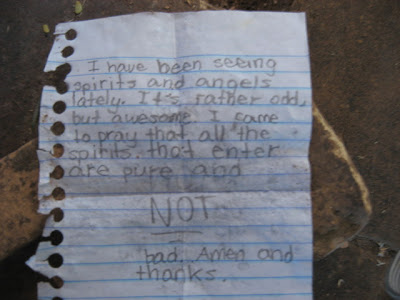 I have been seeing
spirits and angels
lately. It's rather odd,
but awesome. I came
to pray that all the
spirits that enter
are pure and
NOT
bad. Amen and
thanks.